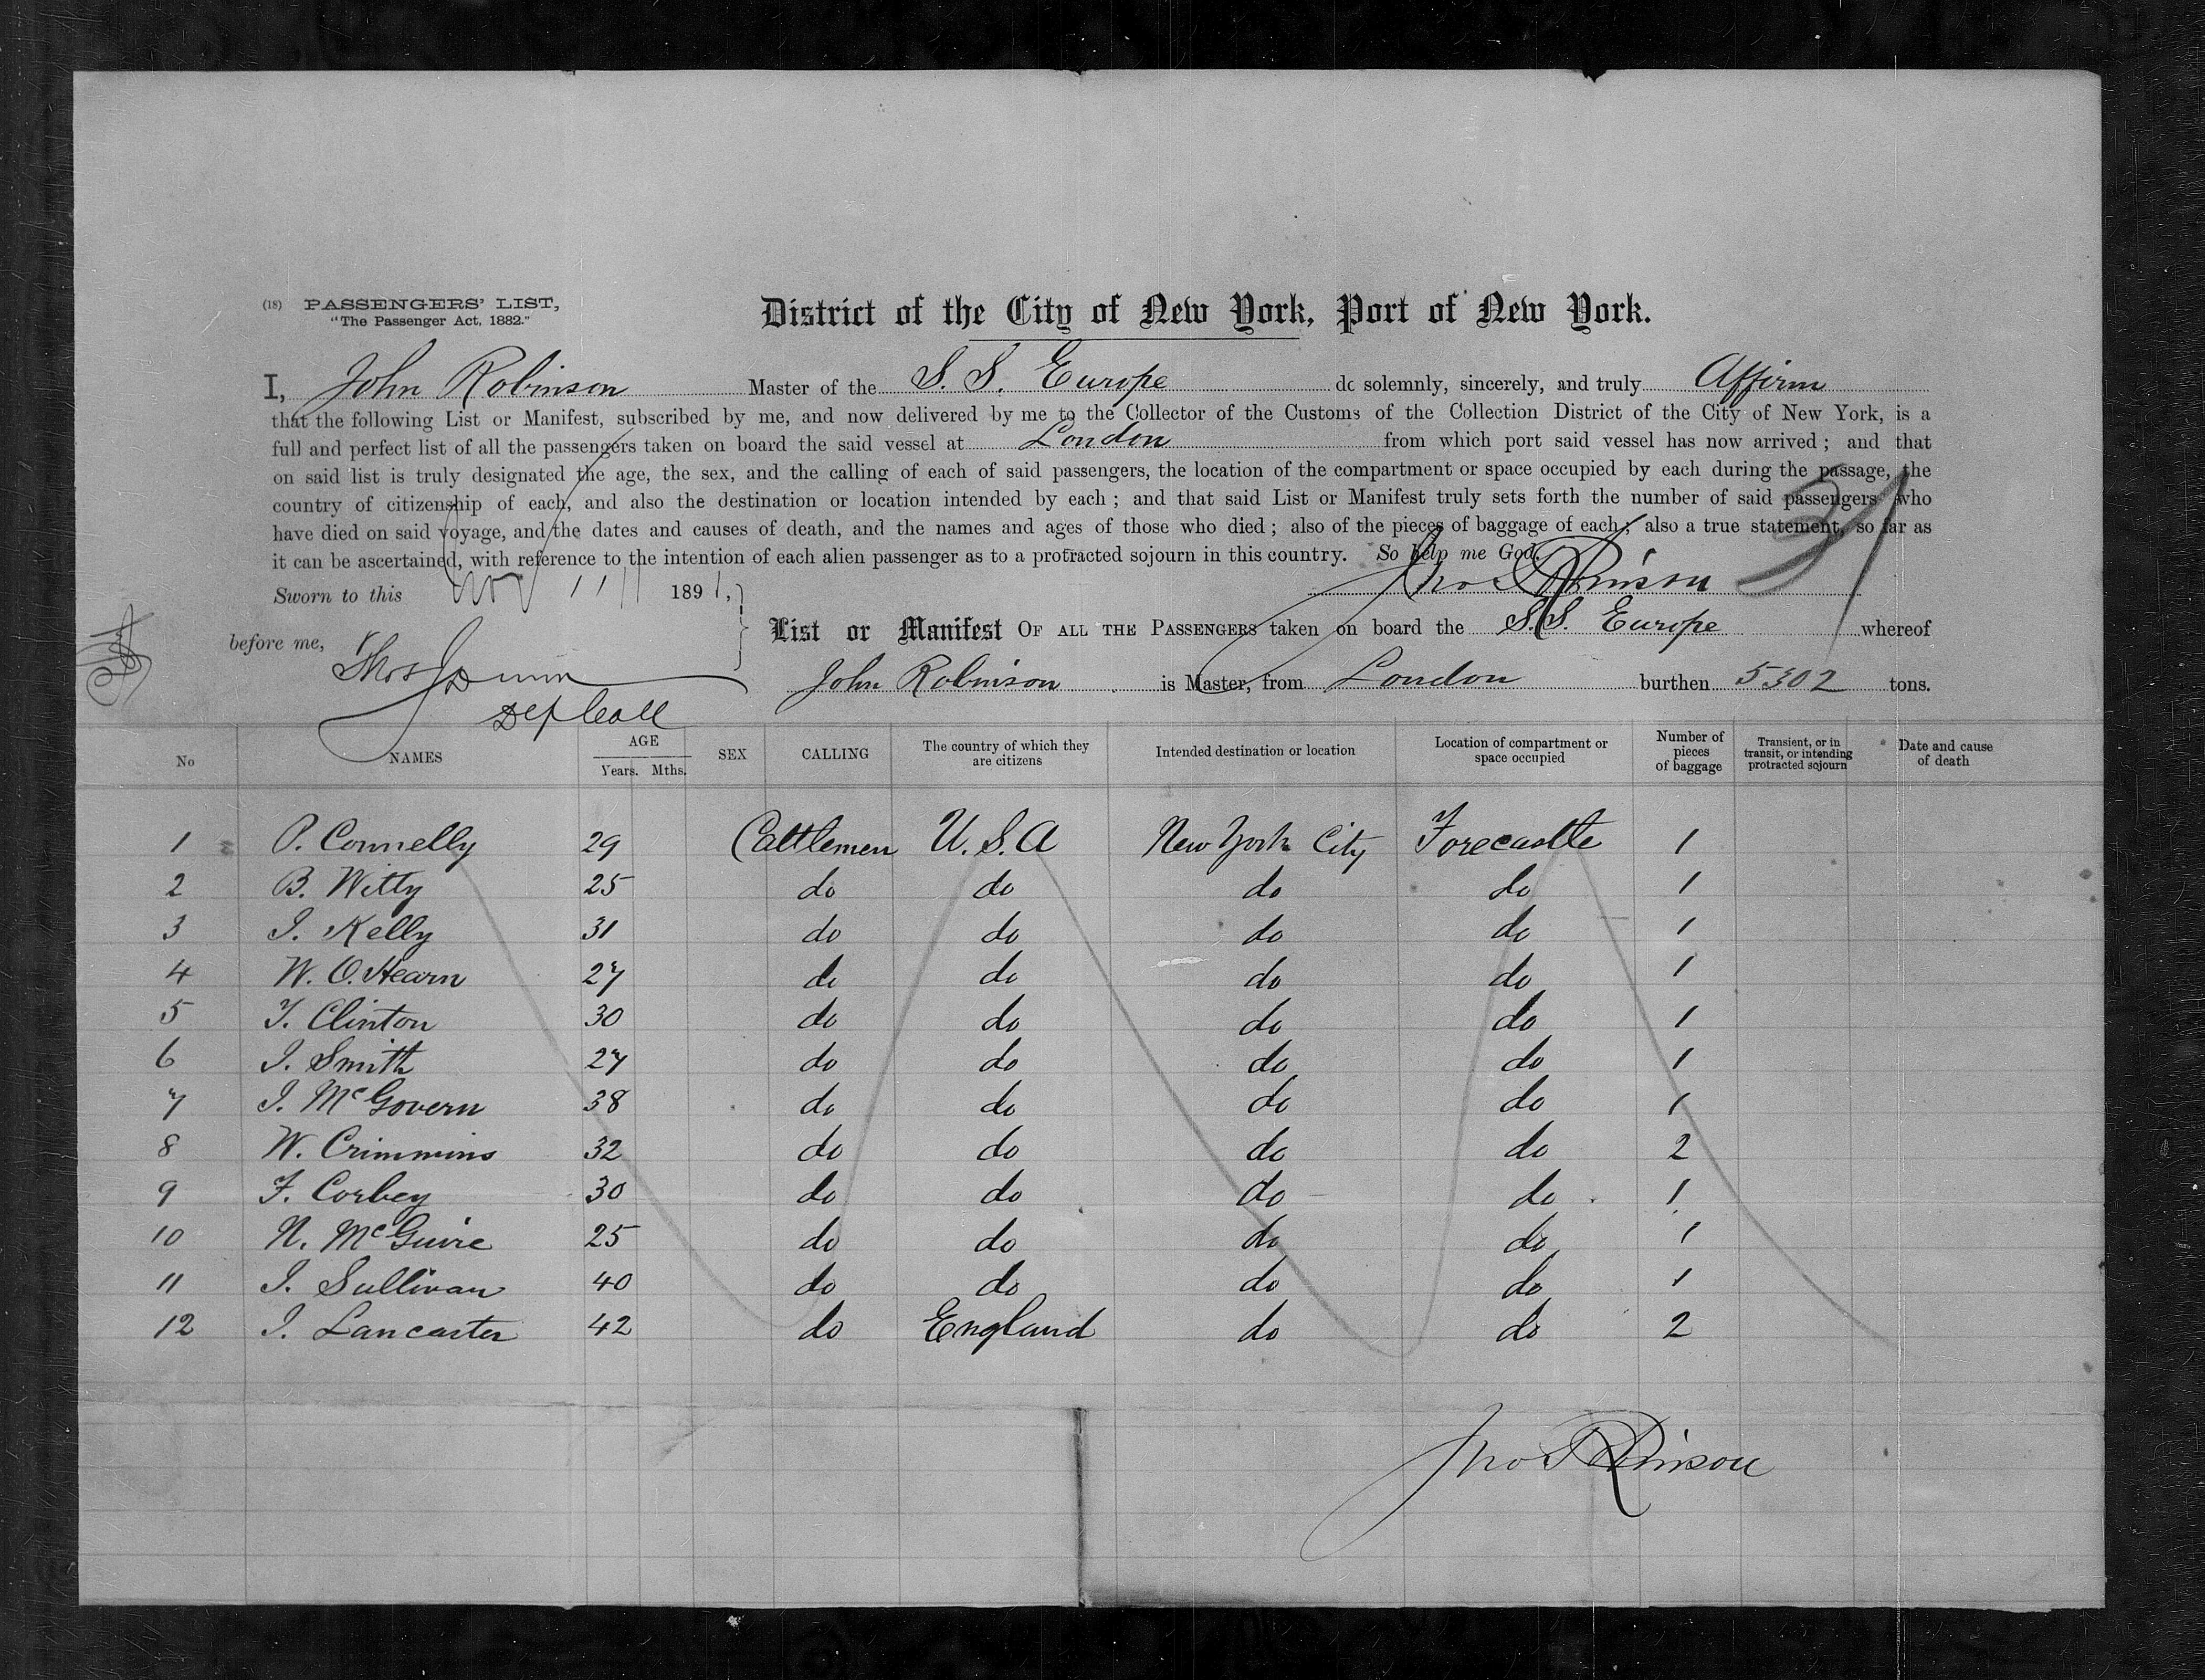 (18) PASSENGERS' LIST,
"The Passenger Act, 1882."
District of the City of New York, Port of New York.
I, John Robinson Master of the S. S. Europe do solemnly, sincerely, and truly Affirm
that the following List or Manifest, subscribed by me, and now delivered by me to the Collector of the Customs of the Collection District of the City of New York, is a
full and perfect list of all the passengers taken on board the said vessel at London from which port said vessel has now arrived; and that
on said list is truly designated the age, the sex, and the calling of each of said passengers, the location of the compartment or space occupied by each during the passage, the
country of citizenship of each, and also the destination or location intended by each; and that said List or Manifest truly sets forth the number of said passengers who
have died on said voyage, and the dates and causes of death, and the names and ages of those who died; also of the pieces of baggage of each; also a true statement, so far as
it can be ascertained, with reference to the intention of each alien passenger as to a protracted sojourn in this country. So help me God.
Sworn to this Nov 11 1891, Jno Robinson
before me, List or Manifest OF ALL THE PASSENGERS taken on board the S.S. Europe whereof
Thos Dunn John Robinson is Master, from London burthen 5302 tons.
Dep Coll
No NAMES AGE Years. Mths. SEX CALLING The country of which they are citizens Intended destination or location Location of compartment or space occupied Number of pieces of baggage Transient, or in transit, or intending protracted sojourn Date and cause of death
1 P. Connelly 29 Cattlemen U. S. A New York City Forecastle 1
2 B. Witty 25 do do do do 1
3 J. Kelly 31 do do do do 1
4 W. O.Hearn 27 do do do do 1
5 T. Clinton 30 do do do do 1
6 J. Smith 27 do do do do 1
7 J. McGovern 38 do do do do 1
8 W. Crimmins 32 do do do do 2
9 F. Corbey 30 do do do do 1
10 N. McGuire 25 do do do do 1
11 J. Sullivan 40 do do do do 1
12 J. Lancaster 42 do England do do 2
Jno Robinson